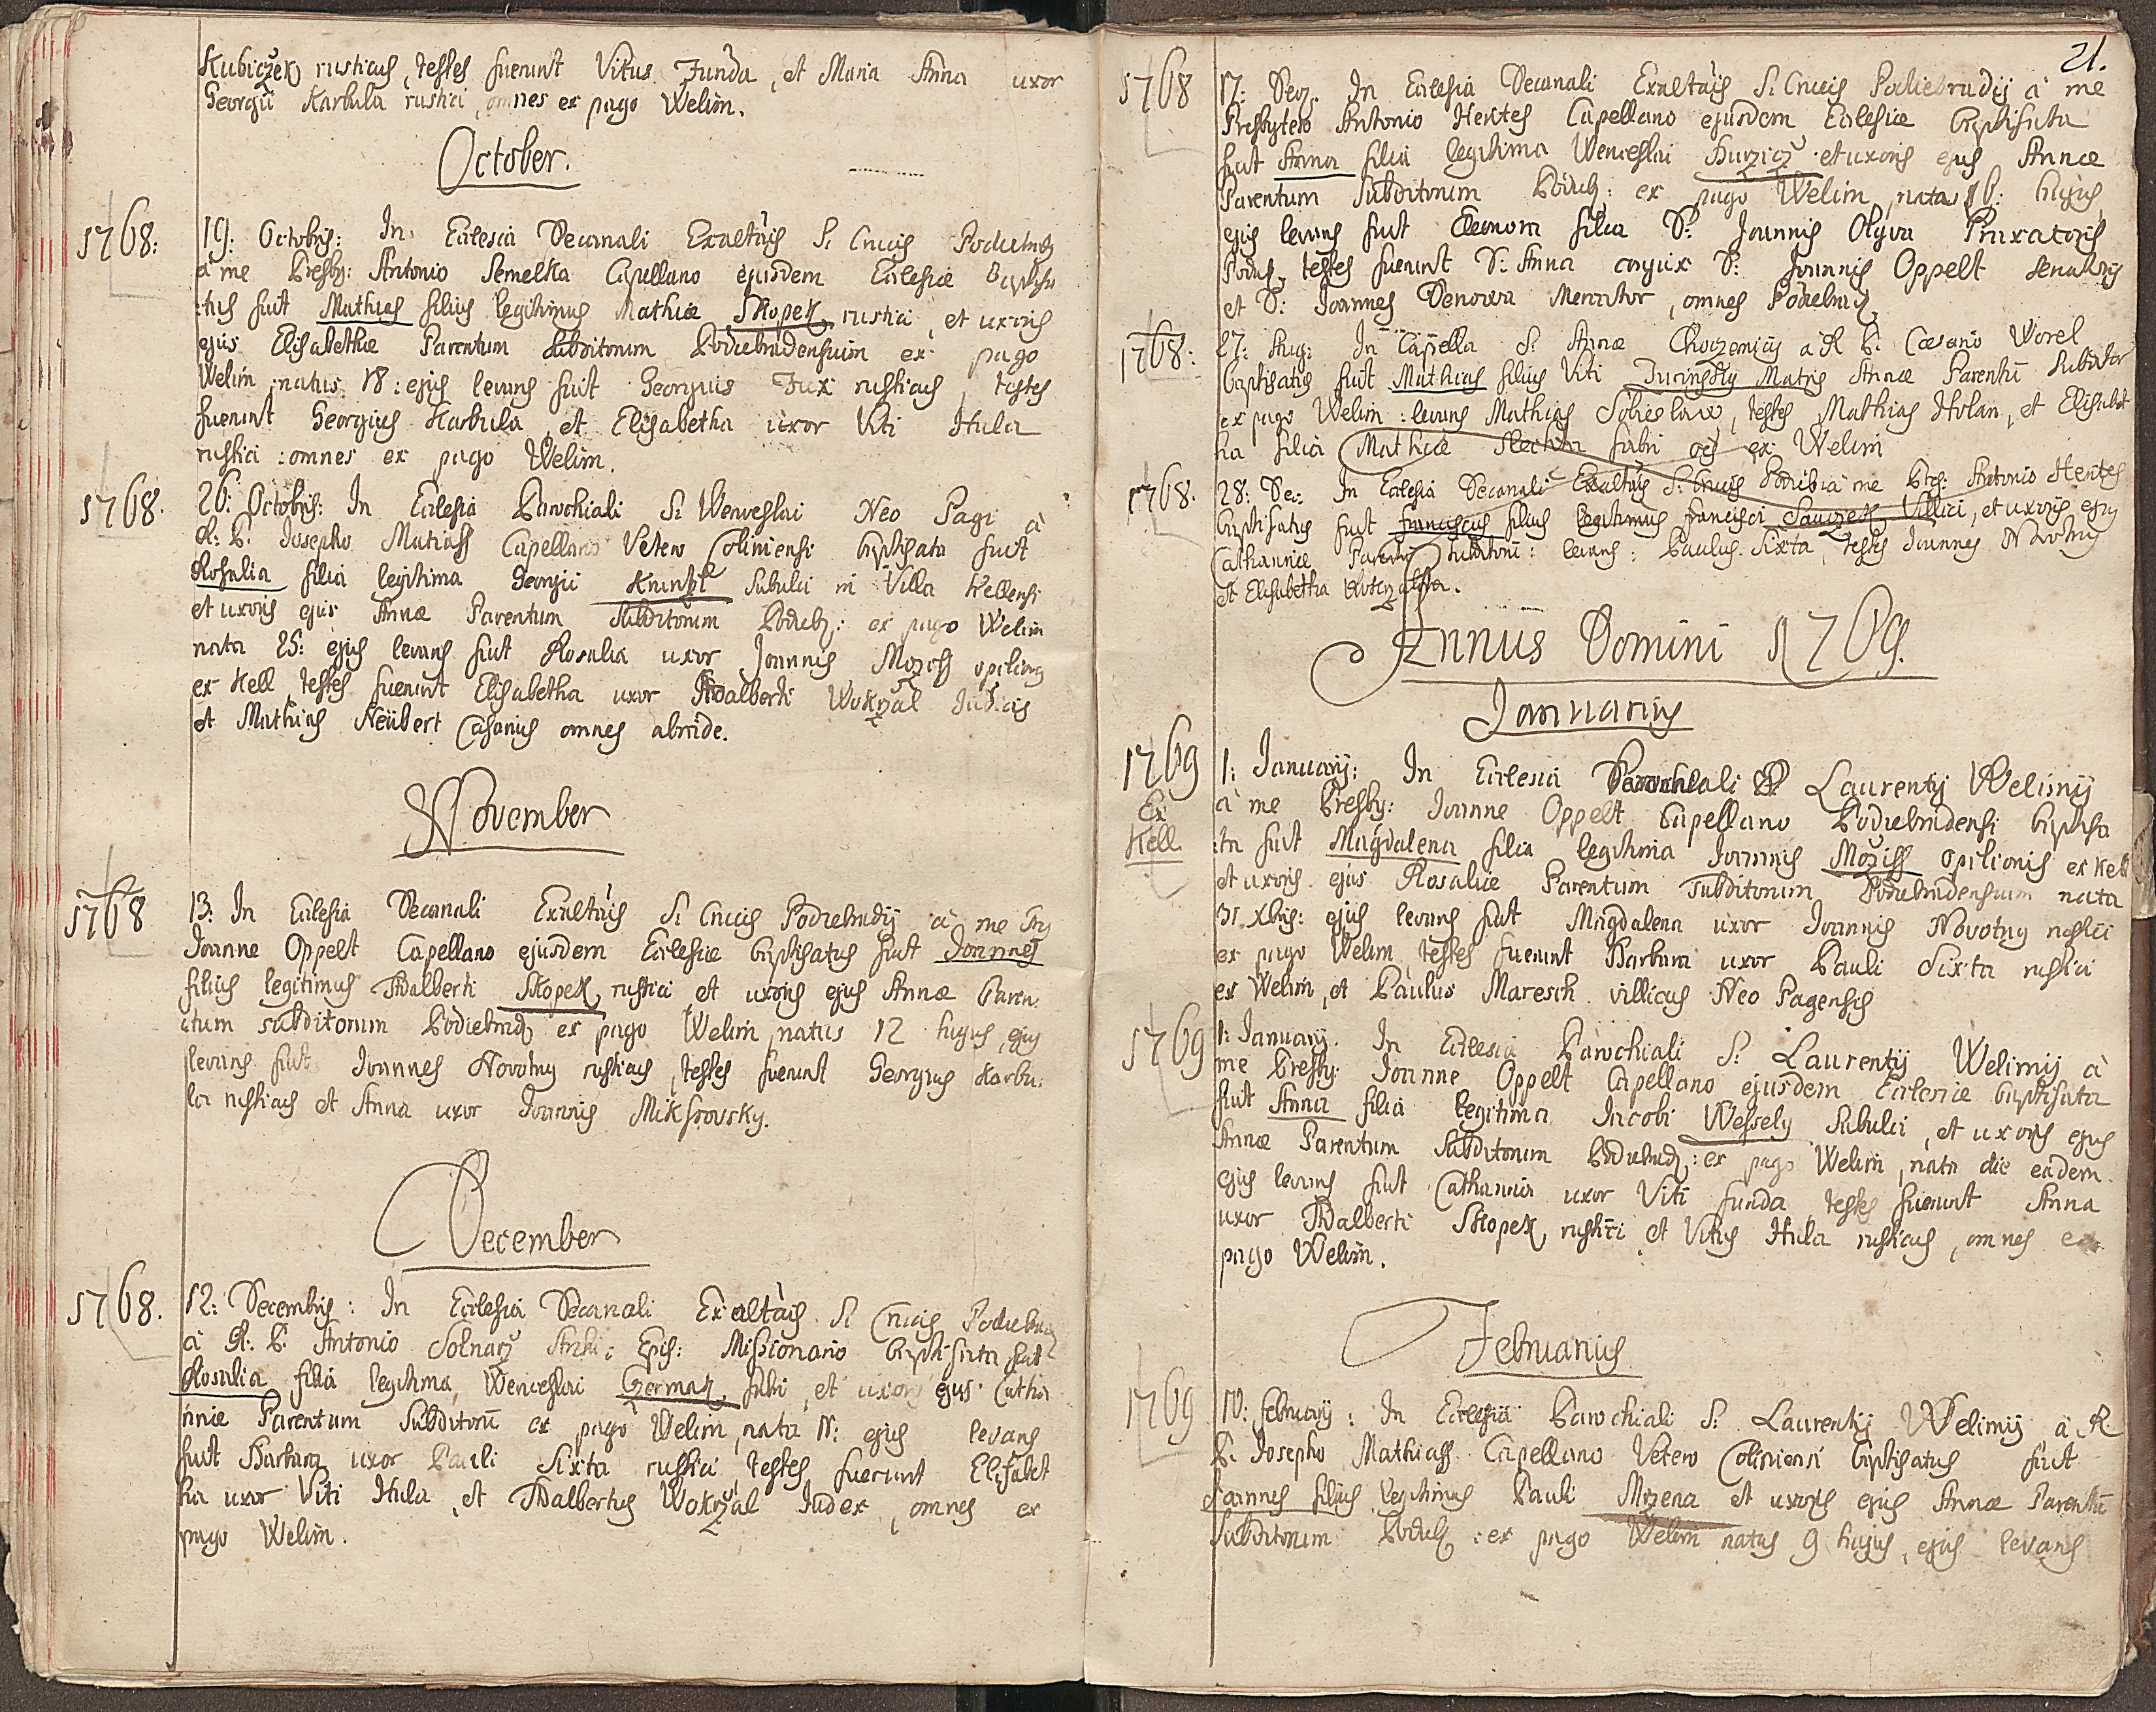 Kubiczek rusticus, testes fuerunt Vitus Funda, et Maria Anna uxor
Georgii Karbula rustici, omnes ex pago Welim.
October.
1768:
19: Octobris: In Ecclesia Decanali Exaltõis S: Crucis Podiebrad
à me Presby: Antonio Semelka Capellano ejusdem Ecclesiæ Baptisa
:tus fuit Mathias filius legitimus Mathiæ Skopek rustici, et uxoris
ejus Elisabethæ Parentum subditorum Podiebradensium ex pago
Welim, natus 18: ejus levans fuit Georgius Fux rusticus, testes
fuerunt Georgius Karbula, et Elisabetha uxor Viti Hula
rustici: omnes ex pago Welim.
1768.
26: Octobris: In Ecclesia Parochiali S: Wenceslai Neo Pagi à
R: P: Josepho Matiass Capellano Vetero Coliniensi baptisata fuit
Rosalia filia legitima Georgii Subulci in Villa Kellensi
et uxoris ejus Annæ Parentum Subditorum Podieb: ex pago Welim
nata 25: ejus levans fuit Rosalia uxor Joannis opilionis
ex Kell, testes fuerunt Elisabetha uxor Adalberti Wokrzal Judicis
et Mathias Neübert Casarius omnes abinde.
November
1768
13: In Ecclesia Decanali Exaltõis S: Crucis Podiebradij à me
Joanne Oppelt Capellano ejusdem Ecclesiæ baptisatus fuit Joannes
filius legitimus Adalberti Skopek, rustici et uxoris ejus Annæ Paren:
:tum subditorum Podiebrad ex pago Welim, natus 12 hujus, ejus
levans fuit Joannes Novotny rusticus, testes fuerunt Georgius Karbu:
la rusticus et Anna uxor Joannis Mikssovsky.
December
1768.
12: Decembris: In Ecclesia Decanali Exaltõis S: Crucis Podiebrad
à R: P: Antonio Solnarz Archi: Epis: Missionario baptisata fuit
Rosalia filia legitima, Wenceslai Czermak, fabri, et uxoris ejus Catha
rinæ Parentum Subditorū ex pago Welim, nata 11: ejus levans
fuit Barbara uxor Pauli Sixta rustici, testes fuerunt Elisabet
ha uxor Viti Hula, et Adalbertus Wokrzal Judex, omnes ex
pago Welim.
21.
1768
17: In Ecclesia Decanali Exaltõis S: Crucis Podiebradij à me
Presbytero Antonio Hentes Capellano ejusdem Ecclesiæ baptisata
fuit Anna filia legitima Wenceslai et uxoris ejus Annæ
Parentum Subditorum Podieb: ex pago Welim, nata 16: hujus
ejus levans fuit Eleonora filia D: Joannis Olyva Praxatoris
Podieb, testes fuerunt D: Anna conjux D: Joannis Oppelt Senatoris
et D: Joannes Denowa Mercator, omnes Podiebrad.
1768:
27: Aug: In Capella S: Annæ Chotzemicij à R P: Cæsario Worel
baptisatus fuit Mathias filius Viti Matris Annæ Parentū Subditor
ex pago Welim: levans Mathias Sobieslaw, testes Mathias Holan, et Elisabet
ha filia Mathiæ fabri ex Welim
1768.
28: In Ecclesia Decanali Exaltõis S: Crucis à me Antonio Hentes
baptisatus fuit Franciscus filius legitimus Francisci Villici, et uxoris ejus
Catharinæ Parentū subditorū: levans: Paulus Sixta, testes Joannes Novotny
et Elisabetha
Annus Domini 1769.
Januarius
1769
Ex
Kell.
1: Januarij: In Ecclesia Parochiali S: Laurentij Welimij
à me Presby: Joanne Oppelt Capellano Podiebradensi baptisa
:ta fuit Magdalena filia legitima Joannis opilionis ex Kell
et uxoris ejus Rosaliæ Parentum Subditorum Podiebradensium nata
31 Xbris: ejus levans fuit Magdalena uxor Joannis Novotny rustici
ex pago Welim, testes fuerunt Barbara uxor Pauli Sixta rustici
ex Welim, et Paulus Maresch villicus Neo Pagensis
1769
1: Januarij. In Ecclesia Parochiali S: Laurentij Welimij à
me Presby. Joanne Oppelt Capellano ejusdem Ecclesiæ baptisata
fuit Anna filia legitima Jacobi Wessely Subulci, et uxoris ejus
Annæ Parentum Subditorum Podiebrad: ex pago Welim, nata die eadem
ejus levans fuit Catharina uxor Viti Funda, testes fuerunt Anna
uxor Adalberti Skopek, rustici et Vitus Hula rusticus, omnes ex
pago Welim.
Februarius
1769
10: Februarij: In Ecclesia Parochiali S: Laurentij Welimij à R
P: Josepho Mathiass Capellano Vetero Coliniensi baptisatus fuit
Joannes filius legitimus Pauli Mrzena et uxoris ejus Annæ Parentū
Subditorum Podieb: ex pago Welim natus 9 hujus, ejus levans